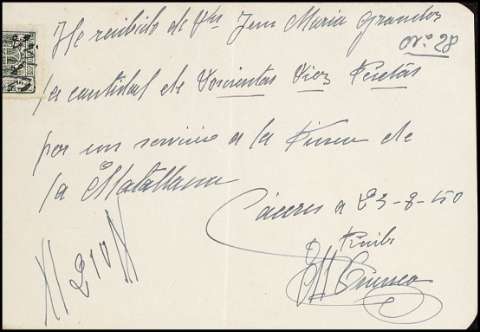 He recibido de Dn. Juan Maria Granados
Nº 28
la cantidad de Doscientas Diez Pesetas
por un servicio a la Finca de
la Matallana
Cáceres a 23-8-50
Recibi
#210#